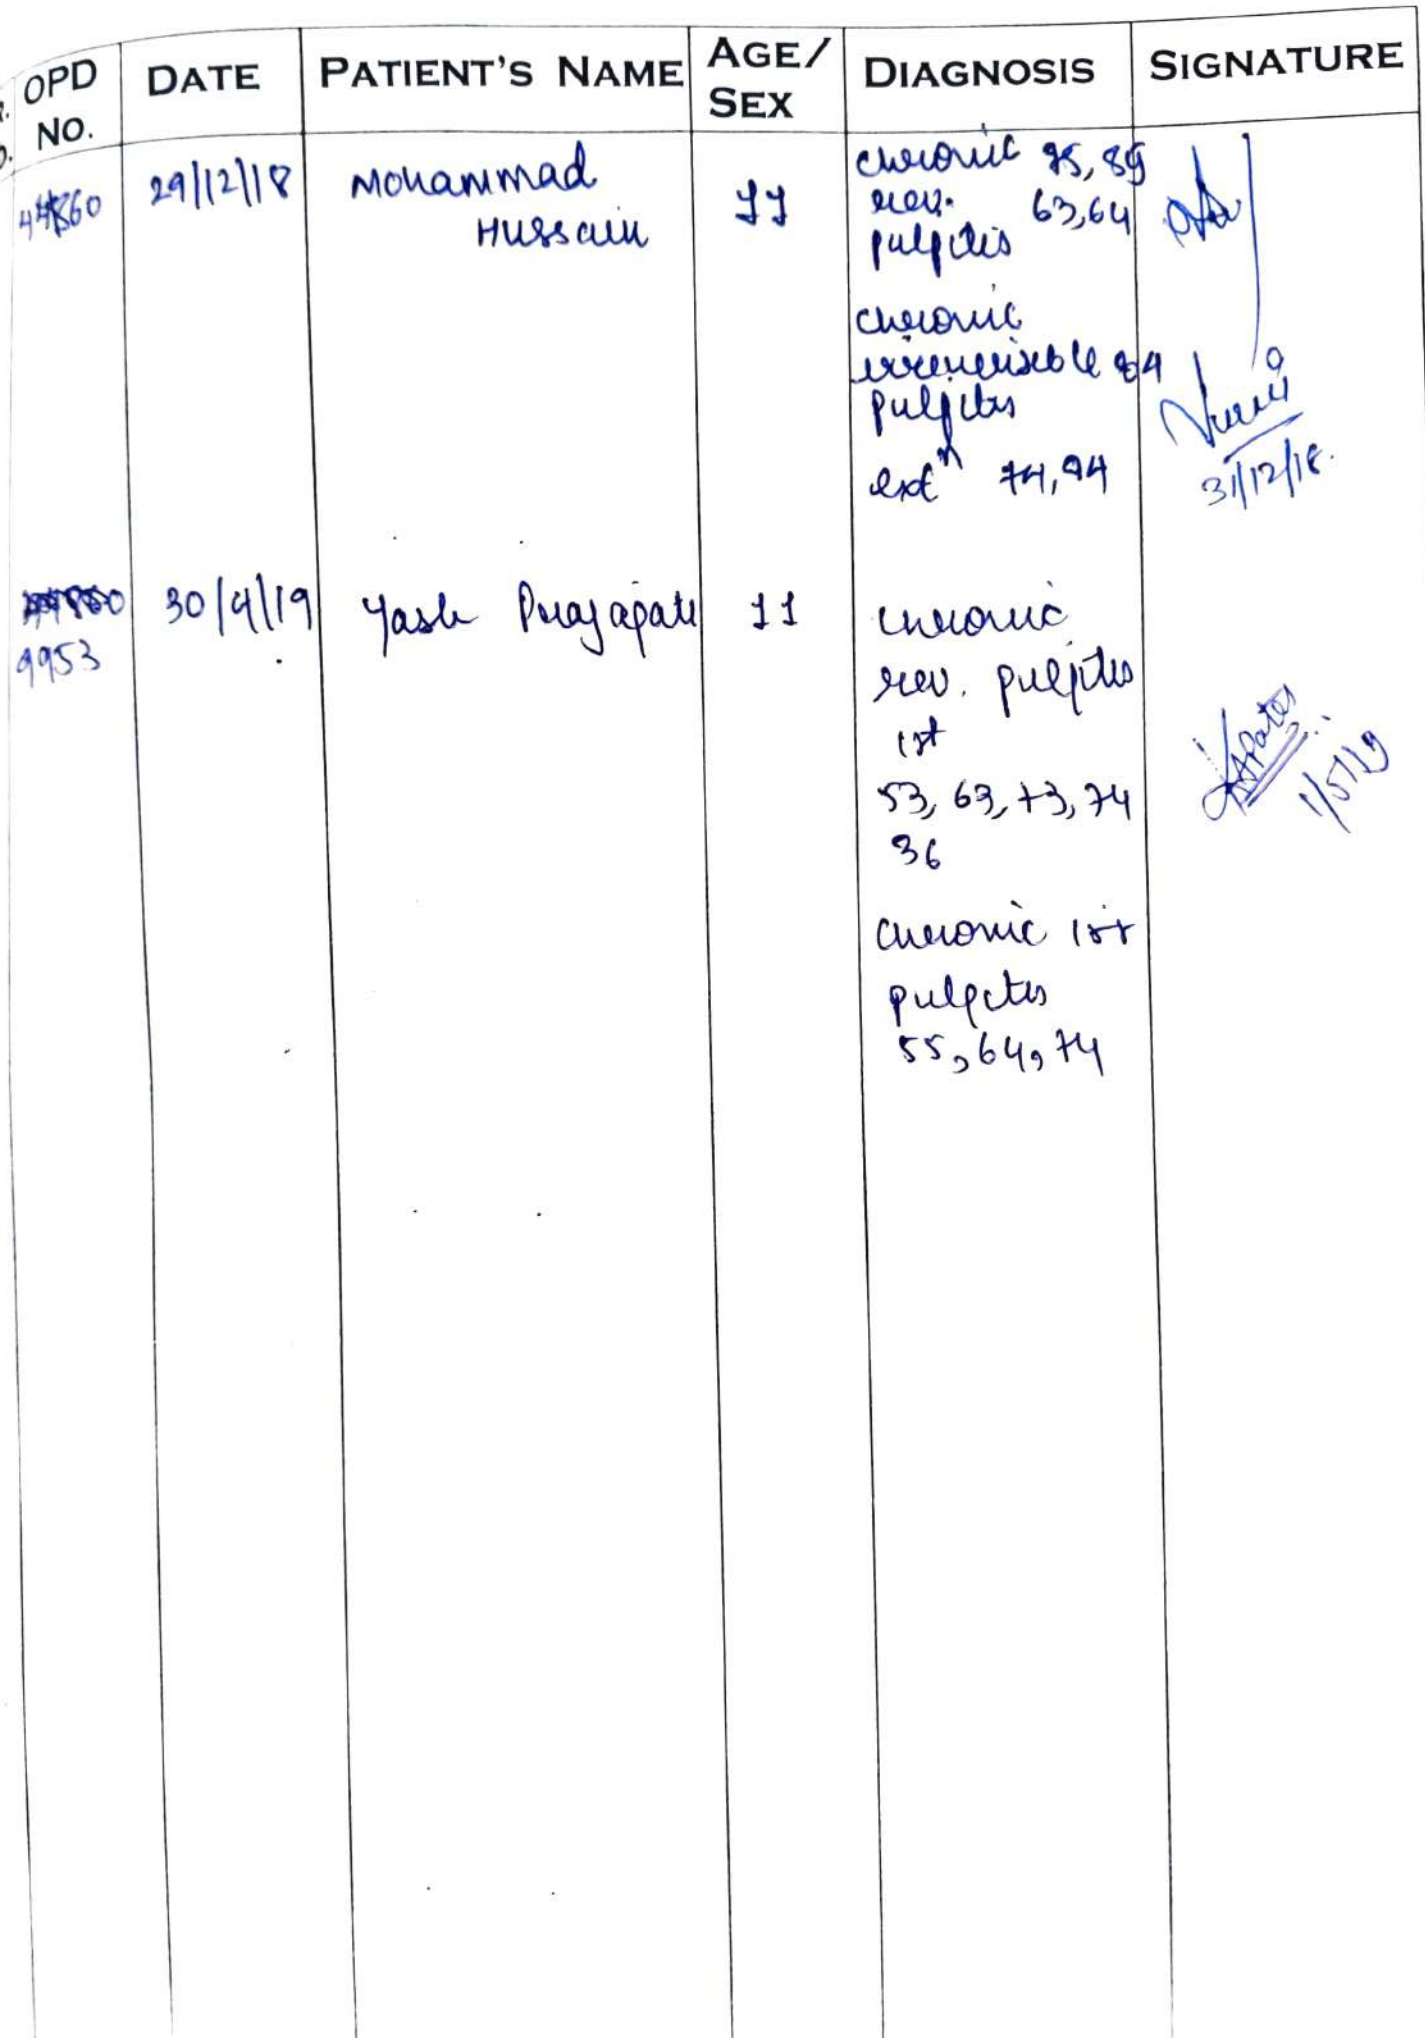 OPD
NO.
DATE
PATIENT'S NAME
AGE/
SEX
DIAGNOSIS
SIGNATURE
29/12/18
Mohammad
Hussain
chronic
rev. 63,64
pulpitis
chronic
irreversible
pulpitis
extⁿ 74,
31/12/18.
9953
30/4/19
Yash Prajapati
11
chronic
rev. pulpitis
53, 63, 73, 74
36
chronic
pulpitis
55, 64, 74
1/5/19